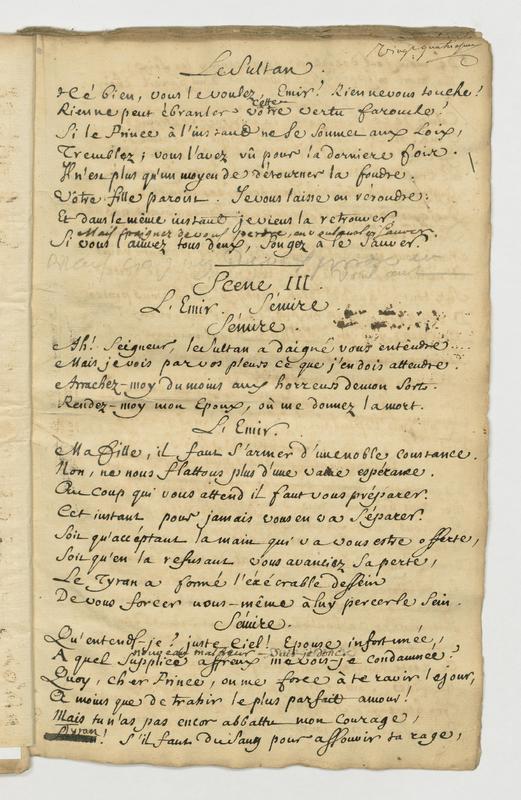 Vingt quatrieme
Le Sultan.
Hé bien, vous le voulez, Emir! Rien ne vous touche!
Rien ne peut ébranler votre cette vertu farouche!
Si le Prince à l'instant ne se soumet aux Loix,
Tremblez; vous l'avez vû pour la derniere fois.
Il n'est plus qu'un moyen de détourner la foudre.
Votre fille paroist. Je vous laisse en résoudre.
Et dans le même instant je viens la retrouver.
Mais craignez de vous perdre, en voulant le sauver.
Si vous l'aimez tous deux, songez à le sauver.
Scene III.
L'Emir. Sémire
Sémire.
Ah! Seigneur, le Sultan a daigné vous entendre....
Mais je vois par vos pleurs ce que j'en dois attendre.
Arrachez-moy du moins aux horreurs de mon sort.
Rendez-moy mon Epoux, où me donnez la mort.
L'Emir.
Ma fille, il faut s'armer d'une noble constance.
Non, ne nous flattons plus d'une vaine espérance.
Au coup qui vous attend il faut vous préparer.
Cet instant pour jamais vous en va séparer.
Soit qu'acceptant la main qui va vous estre offerte,
Soit qu'en la refusant vous avanciez sa perte,
Le Tyran a formé l'éxécrable dessein
De vous forcer vous-même à luy percer le sein.
Sémire.
Qu'entends-je? juste Ciel! Epouse infortunée,
nouveau malheur suis-je donc
A quel supplice affreux me vois-je condamnée?
Quoy, cher Prince, on me force à te ravir le jour,
A moins que de trahir le plus parfait amour!
Mais tu n'as pas encor abbattu mon courage,
Tyran! S'il faut du sang pour assouvir ta rage,